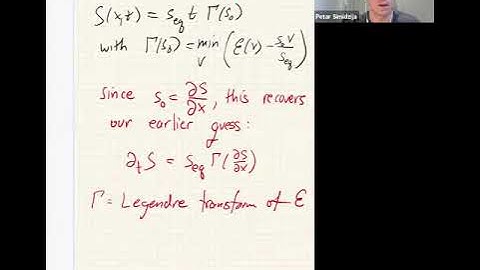 Petar Simidzija
S(x,t) = s_eq t Γ(s_0)
with Γ(s_0) = min_v (ε(v) - s_0 v / s_eq)
since s_0 = ∂S/∂x, this recovers
our earlier guess:
∂_t S = s_eq Γ(∂S/∂x)
Γ = Legendre transform of ε